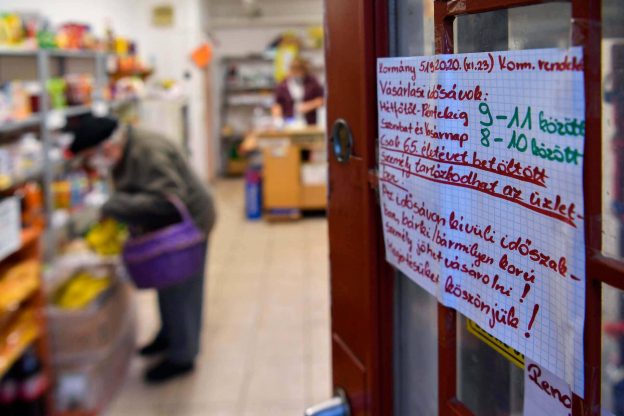 Kormány 519.2020. (XI.23) Korm. rendelet
Vásárlási idősávok:
Hétfőtől-Péntekig 9-11 között
Szombat és Vasárnap 8-10 között
Csak 65. életévét betöltött
személy tartózkodhat az üzlet-
ben!!
Az idősávon kívüli időszak-
ban, bárki/bármilyen korú
személy jöhet vásárolni!
Megértésüket köszönjük!
Rend